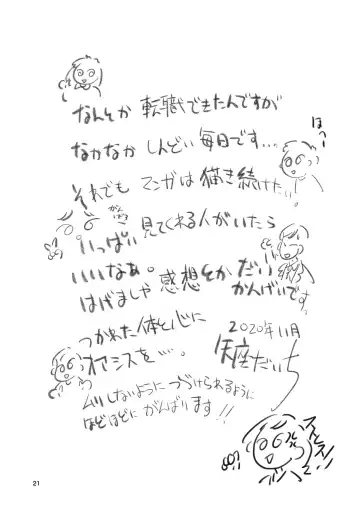 なんとか転職できたんですが
なかなかしんどい毎日です...
はー
それでもマンガは描き続けたい!
いっぱい見てくれる人がいたら
いいなぁ。
はげましや感想とかだい
かんげいです。
つかれた体と心に
オアシスを....。
2020年11月
だいち
ムリしないようにつづけられるように
ほどほどにがんばります!!
21